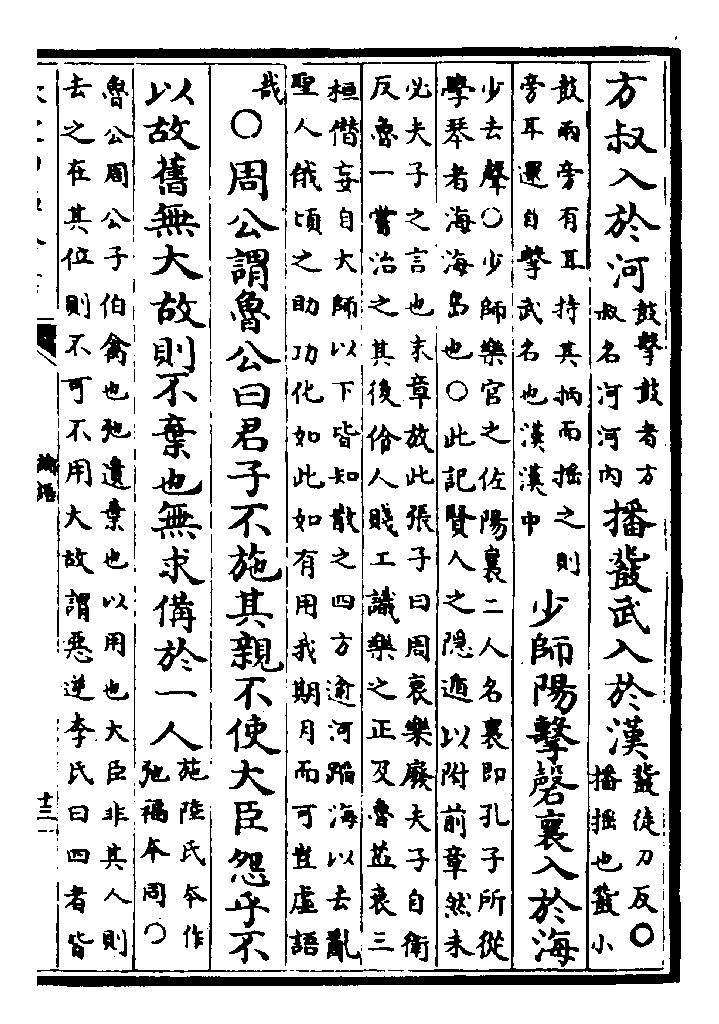 方叔入於河
鼓擊鼓者方
叔名河河內
播鼗武入於漢
鼗徒刀反○
播搖也鼗小
鼓兩旁有耳持其柄而搖之則
旁耳還自擊武名也漢漢中
少師陽擊磬襄入於海
少去聲○少師樂官之佐陽襄二人名襄即孔子所從
學琴者海海島也○此記賢人之隱遁以附前章然未
必夫子之言也末章放此張子曰周衰樂廢夫子自衛
反魯一嘗治之其後伶人賤工識樂之正及魯益衰三
桓僭妄自大師以下皆知散之四方逾河蹈海以去亂
聖人俄頃之助功化如此如有用我期月而可豈虛語
哉
○周公謂魯公曰君子不施其親不使大臣怨乎不
以故舊無大故則不棄也無求備於一人
施陸氏本作
弛福本同○
魯公周公子伯禽也弛遺棄也以用也大臣非其人則
去之在其位則不可不用大故謂惡逆李氏曰四者皆
論語
十三